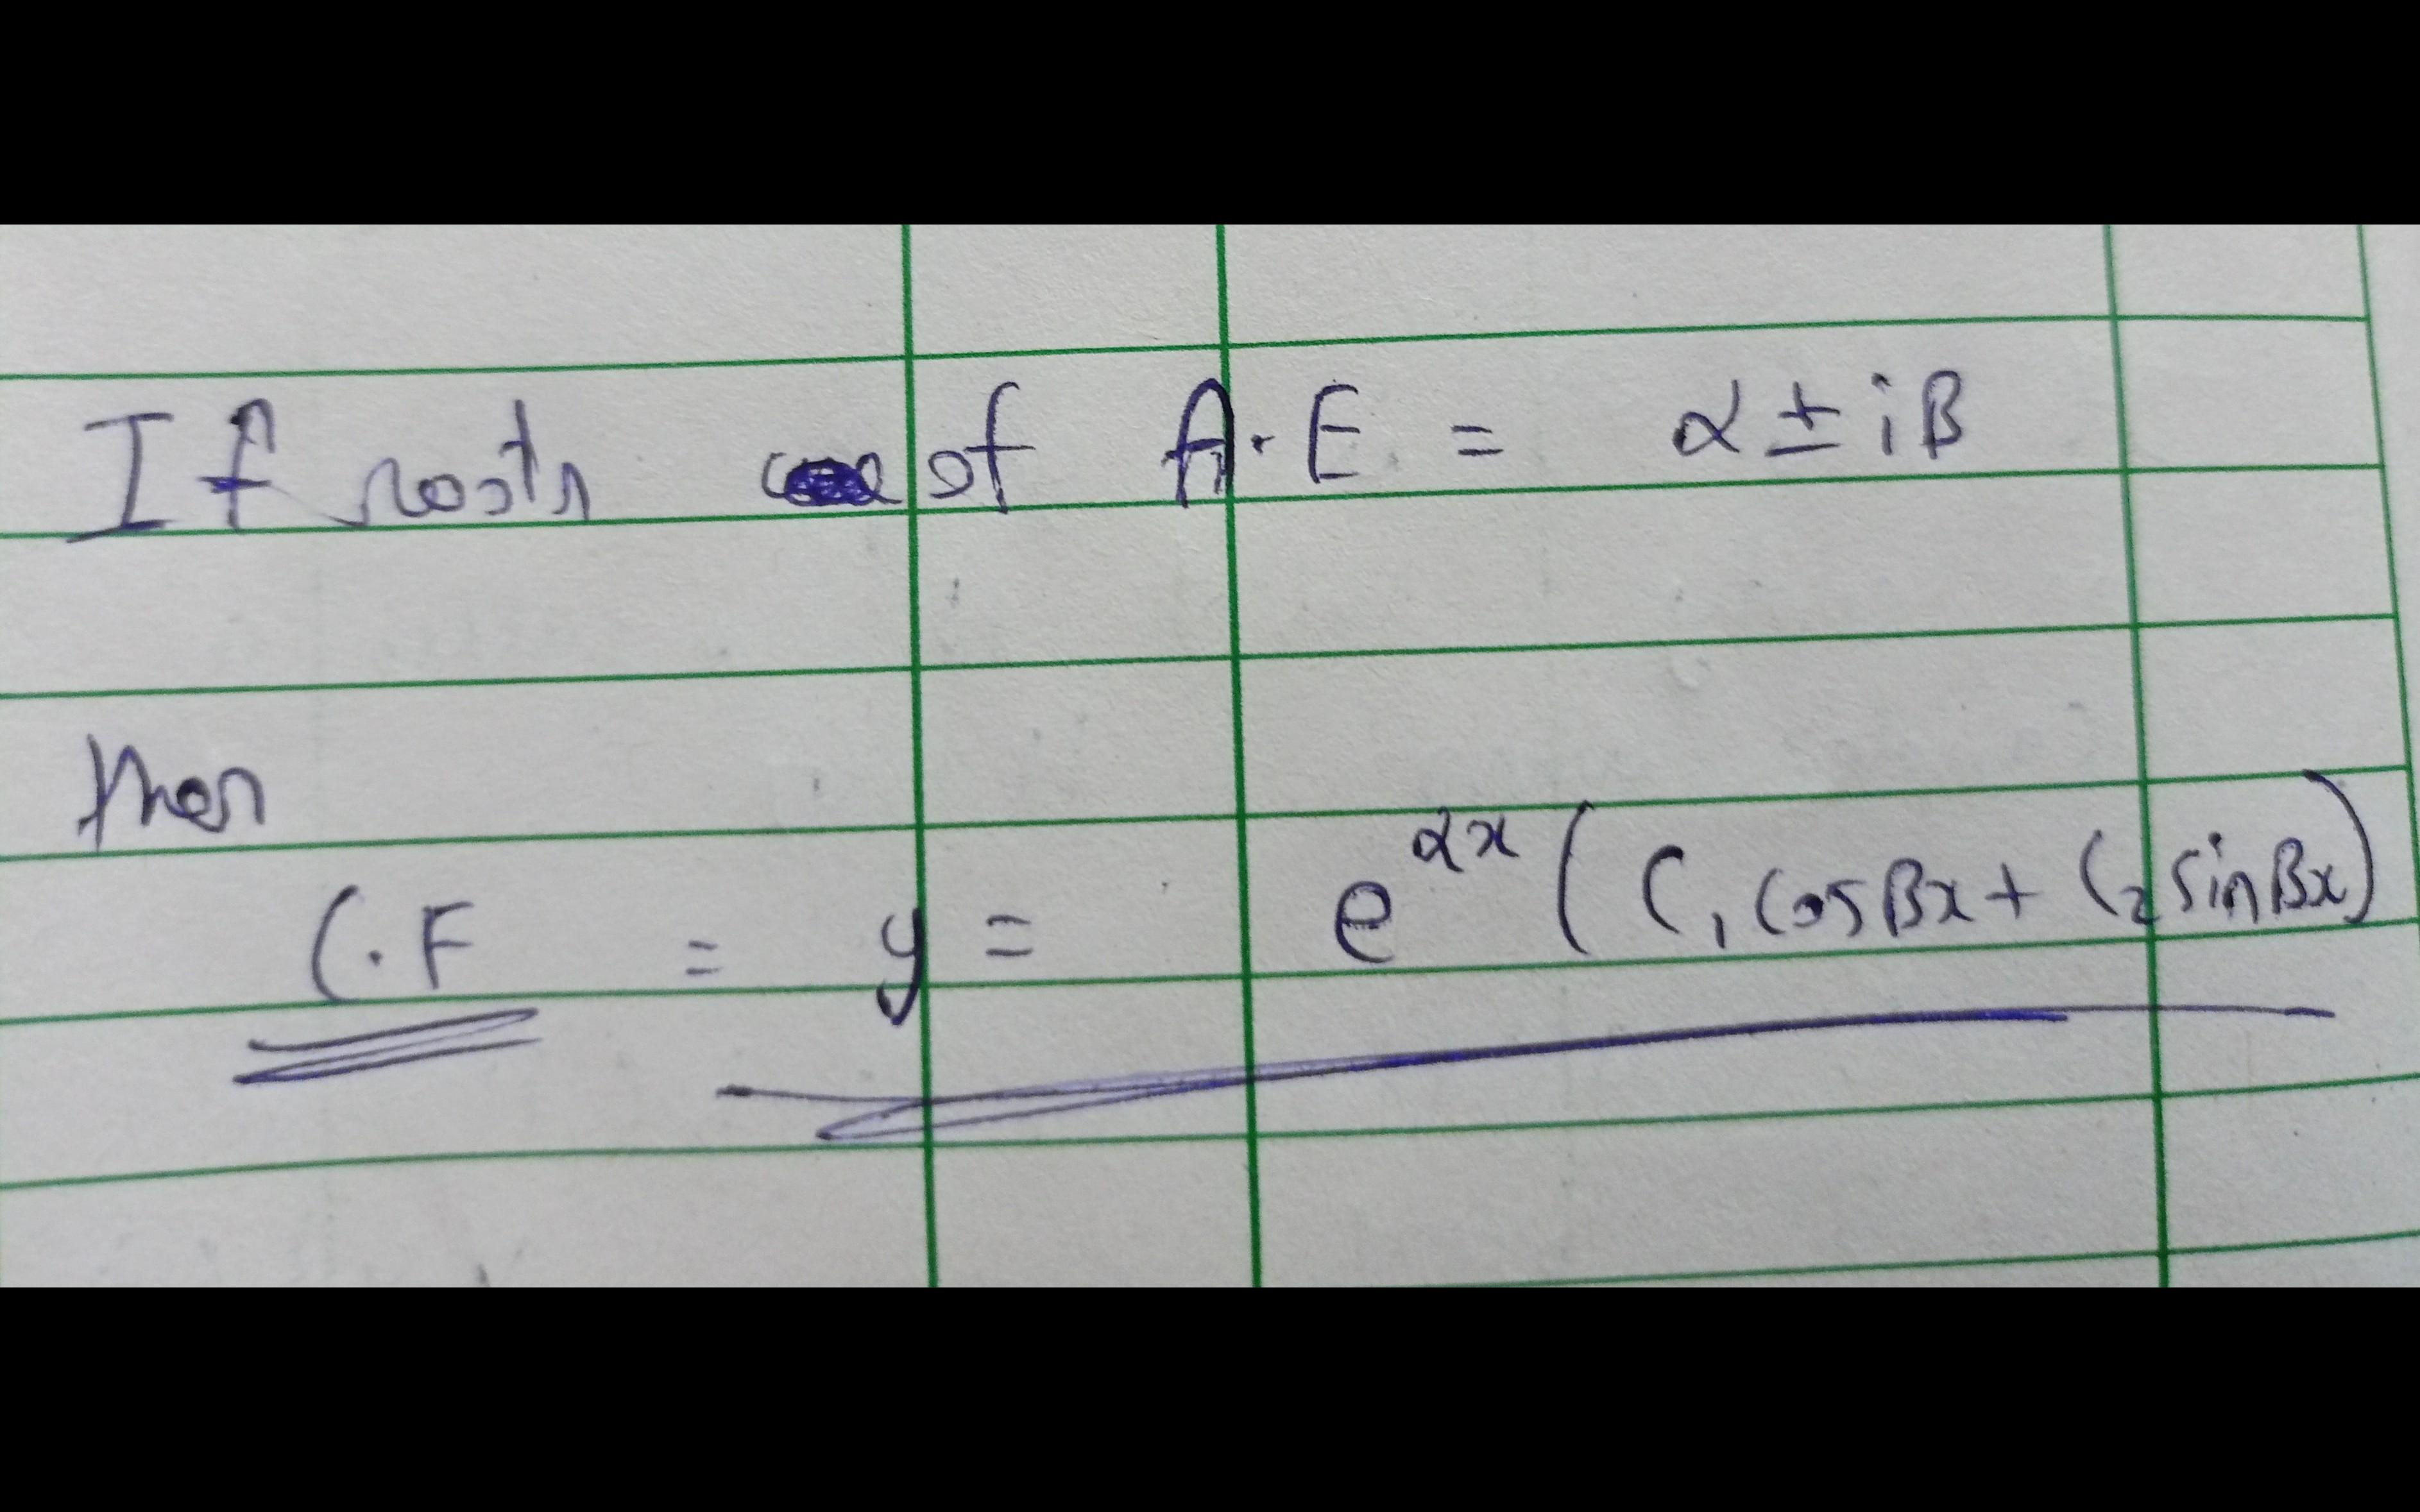 If roots of A.E = α ± iβ
then
C.F = y = e^αx (C₁ cosβx + C₂ sinβx)